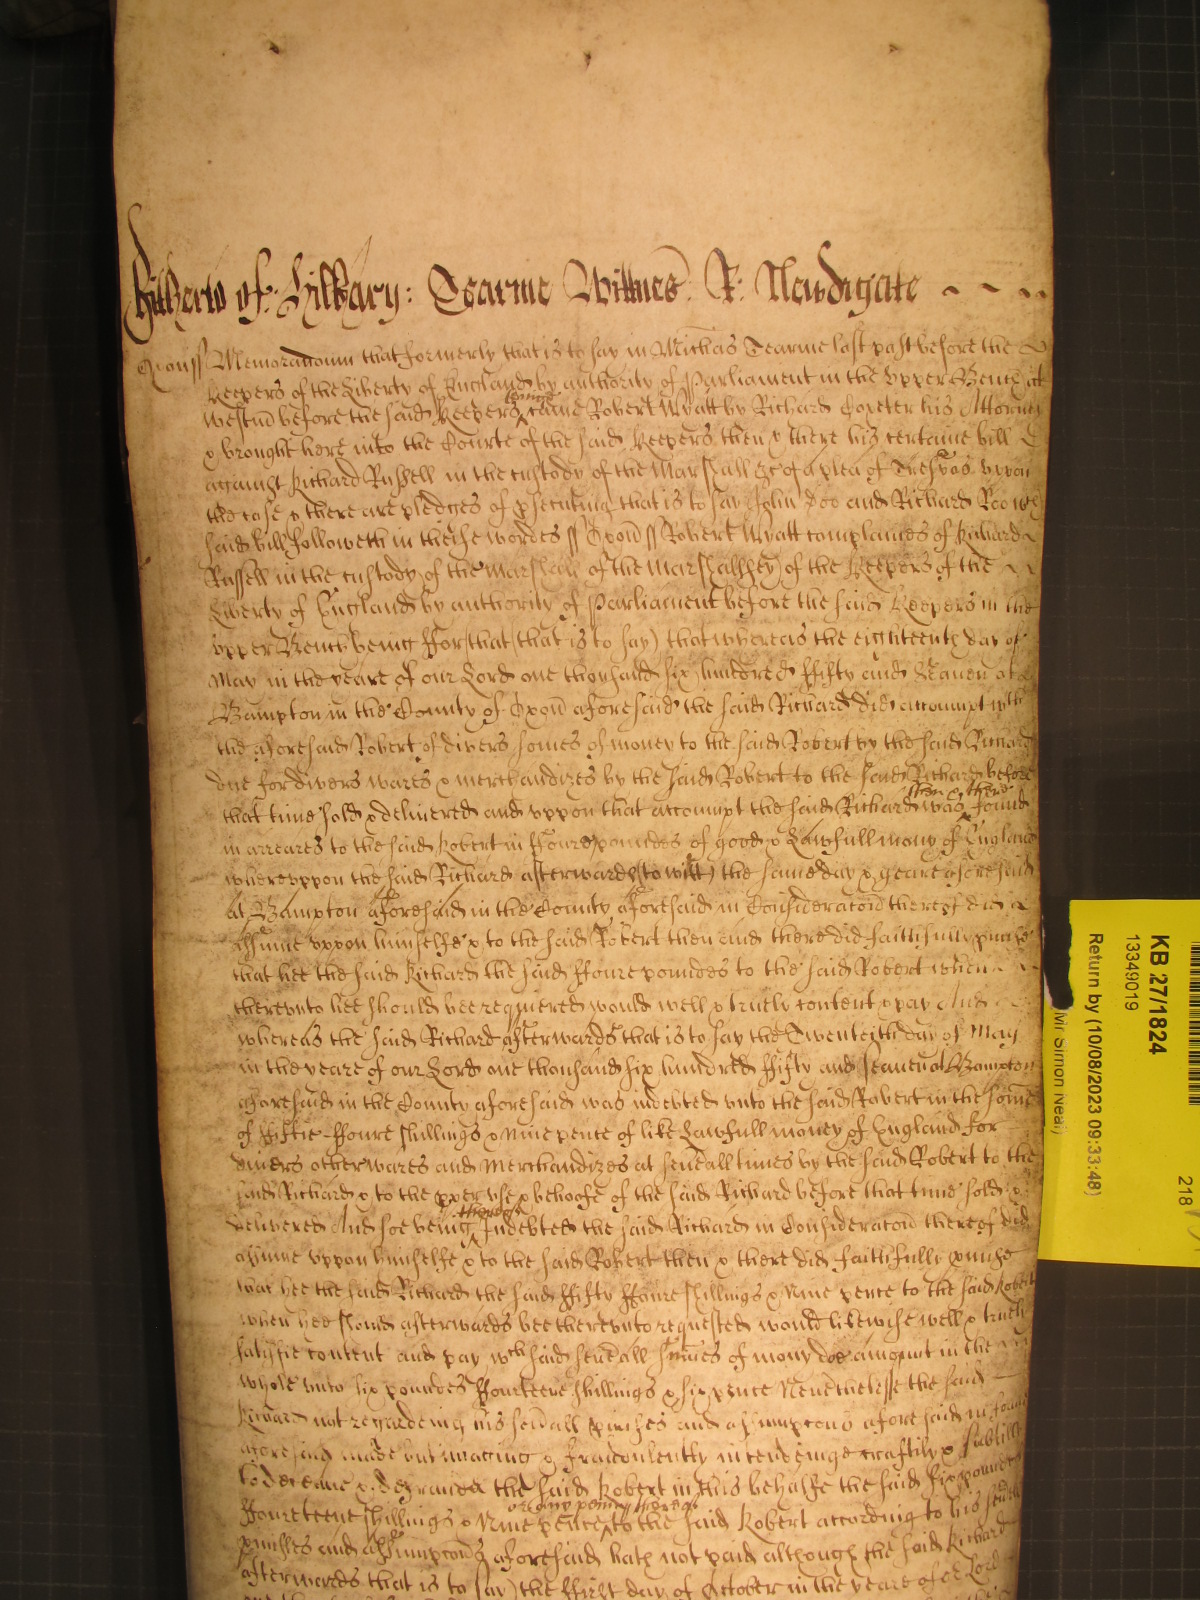 hitherto of: Hillary: Tearme Wittnes R: Newdigate
Oxon ss Memorandum that formerly that is to say in Michas Tearme last past before the
Keepers of the Liberty of England by authority of Parliament in the upper Bench att
Westm before the said Keepers came Robert Wyatt by Richard Coxeter his Attorney
& brought here into the Courte of the said Keepers then & there his certaine bill
against Richard Russell in the custody of the Marshall &c of a plea of Trespas uppon
the case & there are pledges of psecuting that is to say John Doe and Richard Roo wch
said bill followeth in theise wordes ss Oxon ss Robert Wyatt complaines of Richard
Russell in the custody of the Marshall of the Marshallsey of the Keepers of the
Liberty of England by authority of Parliament before the said Keepers in the
upper Bench being ffor that (that is to say) that whereas the eighteenth day of
May in the yeare of our Lord one thousand six hundred ffifty and Seaven at
Bampton in the County of Oxon aforesaid the said Richard did accompt with
the aforesaid Robert of divers somes of money to the said Robert by the said Richard
due for divers wares & merchandizes by the said Robert to the said Richard before
then & there
that time sold & delivered and uppon that accompt the said Richard was found
in arreares to the said Robert in ffoure poundes of good & Lawfull mony of England
whereuppon the said Richard afterwards (to witt) the same day & yeare aforesaid
at Bampton aforesaid in the County aforesaid in Consideracon thereof did
assume uppon himselfe & to the said Robert then and there did faithfully pmise
that hee the said Richard the said ffoure poundes to the said Robert when
thereunto hee should bee required would well & truely content & pay And
whereas the said Richard afterwards that is to say the Twentieth day of May
in the yeare of our Lord one thousand six hundred ffifty and seaven at Bampton
aforesaid in the County aforesaid was indebted unto the said Robert in the some
of ffiftie ffoure shillings & Nine pence of like Lawfull money of England for
divers other wares and Merchandizes at seuerall times by the said Robert to the
said Richard & to the pper use & behoofe of the said Richard before that time sold &
thereof
delivered And soe being Indebted the said Richard in Consideracon thereof did
assume uppon himselfe & to the said Robert then & there did faithfully pmise
that hee the said Richard the said ffifty ffoure shillings & Nine pence to the said Robert
when hee should afterwards bee thereunto requested would likewise well & truely
satisfie content and pay wch said seuerall sumes of mony doe amount in the
whole unto six poundes ffourteene shillings & six pence Neuerthelesse the said
Richard not regardeing his seuerall pmises and assumpcons aforesaid in forme
aforesaid made but imagining & fraudulently intendinge craftily & subtilly
to deceave & defraude the said Robert in this behalfe the said six poundes
or any penny thereof
ffoureteene shillings & Nine pence to the said Robert according to his seuerall
pmisses and assumpcons aforesaid hath not paid although the said Richard
afterwards that is to say) the ffirst day of October in the yeare of or Lord
KB 27/1824
13349019
Return by (10/08/2023 09:33:48)
Mr Simon Neal
218